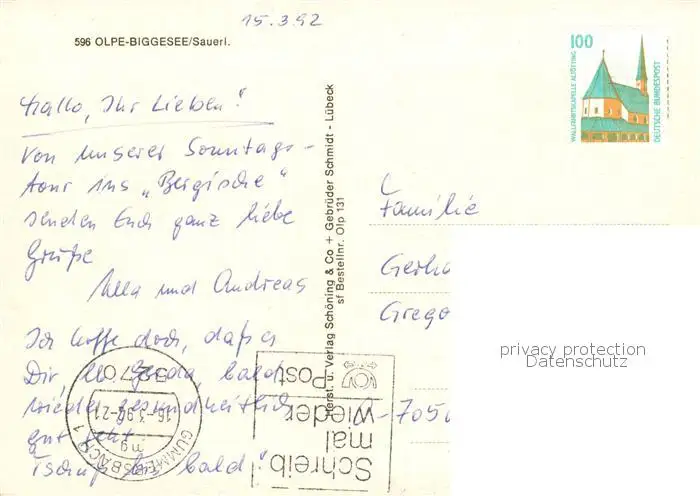 15.3.92
596 OLPE-BIGGESEE/Sauerl.
Hallo, Ihr Lieben!
Von unserer Sonntags-
tour ins „Bergische“
senden Euch ganz liebe
Grüße
und Andreas
Ich hoffe doch, daß es
Dir, Gerda, bald
wieder gesundheitlich
gut geht.
Tschüß bis bald!
Herst. u. Verlag Schöning & Co + Gebrüder Schmidt - Lübeck
sf Bestellnr. Olp 131
100
WALLFAHRTSKAPELLE ALTÖTTING
DEUTSCHE BUNDESPOST
Familie
Gerha
Grego
-7050
privacy protection
Datenschutz
Schreib
mal
wieder
Post
5270
16.-3.92-21
mg
GUMMERSBACH 1